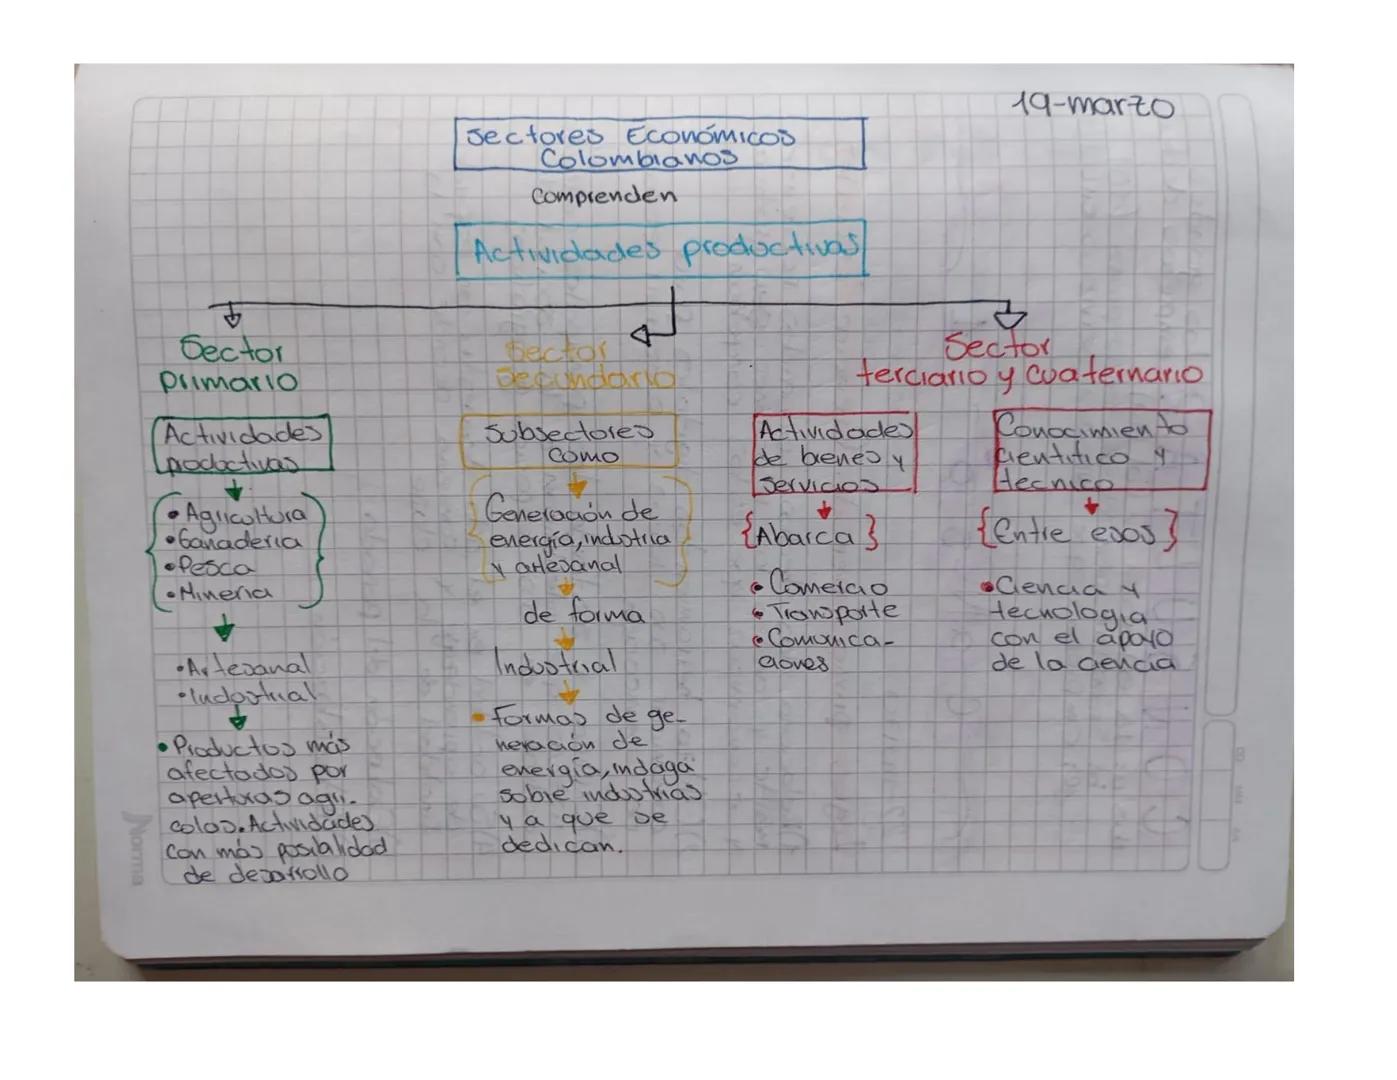 19-marzo
Sectores Económicos
Colombianos
Comprenden
Actividades productivas
Sector
primario
Actividades
productivas
• Agricultura
• Ganaderia
• Pesca
• Mineria
• Artesanal
• Industrial
• Productos más
afectados por
aperturas agri-
colas. Actividades
con más posibalidad
de desarrollo
Sector
Secundario
Subsectores
como
Generación de
energía, industria
y artesanal
de forma
Industrial
• Formas de ge-
neración de
energía, indaga
sobre industrias
y a que se
dedican.
Sector
terciario y cuaternario
Actividades
de bienes y
servicios
{Abarca}
• Comercio
• Transporte
• Comunica-
ciones
Conocimiento
cientifico y
tecnico
{Entre esos}
• Ciencia y
tecnologia
con el apoyo
de la ciencia
Norma